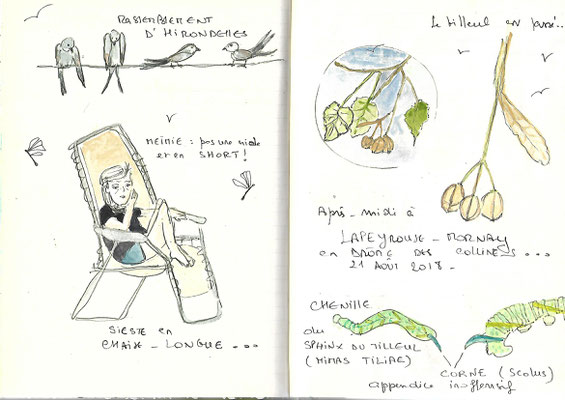 RASSEMBLEMENT
D'HIRONDELLES
MEIMIE : pas une ride
et en SHORT !
SIESTE en
CHAISE - LONGUE ...
Le tilleul en passé..
Après-midi à
LAPEYROUSE - MORNAY
en DRÔME DES COLLINES ...
21 AOÛT 2018 -
CHENILLE
du
SPHINX DU TILLEUL
(MIMAS TILIAE)
CORNE (Scolus)
appendice inoffensif